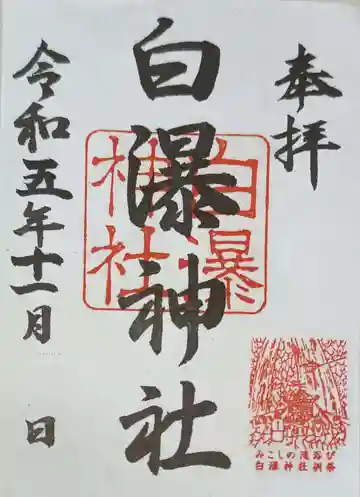 奉拝
白瀑神社
白瀑神社
令和五年十一月 日
みこしの滝浴び
白瀑神社例祭